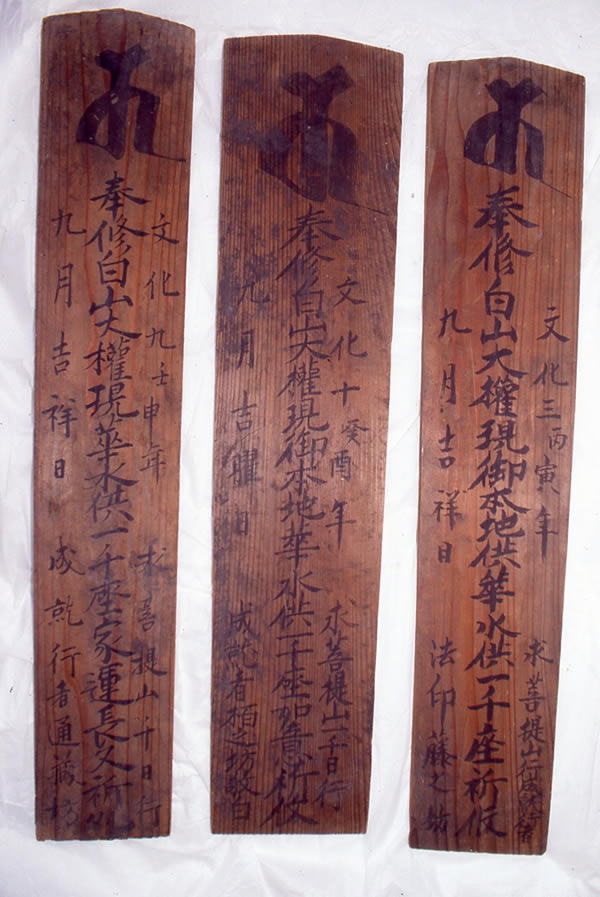 文化三丙寅年 求菩提山行
奉修白山大権現御本地供華水供一千座祈攸
九月吉祥日 法印藤之坊
文化十癸酉年 求菩提山一千日行
奉修白山大権現御本地華水供一千座如意祈攸
九月吉曜日 成就者栢之坊敬白
文化九壬申年 求菩提山千日行
奉修白山大權現華水供一千座家運長久祈
九月吉祥日 成就行者通蔵坊